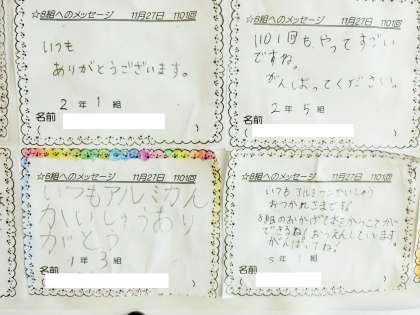 ☆8組へのメッセージ 11月27日 1101回
いつも
ありがとうございます。
2年1組
名前
( )
☆8組へのメッセージ 11月27日 1101回
1101回もやってすごい
ですね。
がんばってください。
2年5組
名前
( )
☆8組へのメッセージ 11月27日 1101回
いつもアルミかん
かいしゅうあり
がとう
1年3組
名前
( )
☆8組へのメッセージ 11月27日 1101回
いつもアルミカンかいしゅう
おつかれさまです!
8組のおかげで
できるね!おうえんしています
がんばってね!
5年1組
名前
( )